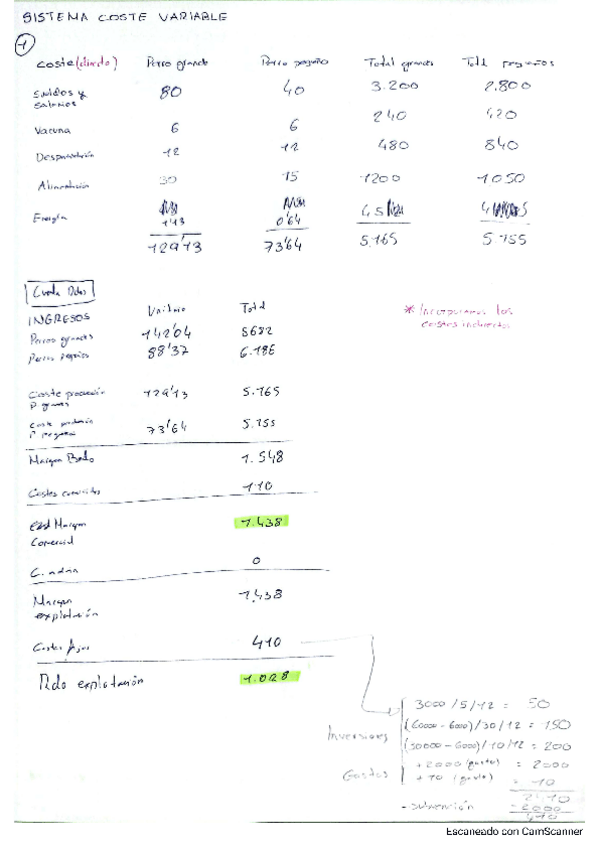 SISTEMA COSTE VARIABLE
1
Coste (directo) Perro grande Perro pequeño Total grandes Total pequeños
Sueldos y salarios 80 40 3.200 2.800
Vacuna 6 6 240 420
Desparasitación 12 12 480 840
Alimentación 30 15 1200 1050
Energía 1'13 0'64 45
129'13 73'64 5.165 5.155
Cuenta Rdos
INGRESOS Unitario Total
Perros grandes 142'04 5682
Perros pequeños 88'37 6.186
* Incorporamos los costes indirectos
Coste producción P grandes 129'13 5.165
Coste producción P pequeños 73'64 5.155
Margen Bruto 1.548
Costes comerciales 110
Margen Comercial 1.438
C. admin 0
Margen explotación 1.438
Costes fijos 410
Rdo explotación 1.028
3000/5/12 = 50
(60000 - 6000)/30/12 = 150
Inversiones
(30000 - 6000)/10/12 = 200
Gastos
+ 2000 (gasto) = 2000
+ 10 (gasto) = 10
2410
- subvención - 2000
410
Escaneado con CamScanner